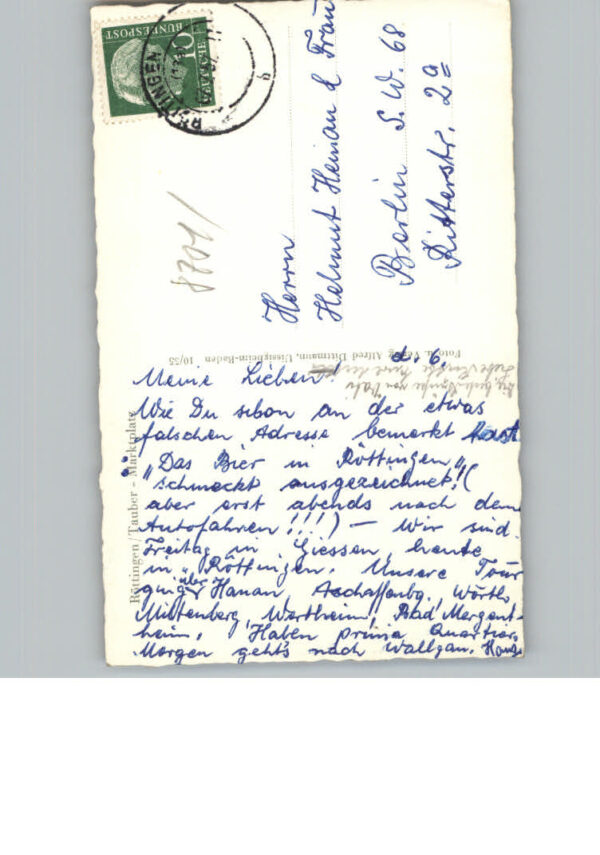 DEUTSCHE
BUNDESPOST
10
RÖTTINGEN
b
8701/
Herrn
Helmut Heiman & Frau
Berlin S.W. 68
Ritterstr. 2a
Foto u. Verlag Alfred Dittmann, Uissigheim-Baden 10/55
Röttingen/Tauber - Marktplatz
d. 6.
Meine Lieben!
Wie Du schon an der etwas
falschen Adresse bemerkt hast
„Das Bier in Röttingen„
schmeckt ausgezeichnet!(
aber erst abends nach dem
Autofahren!!!) — Wir sind
Freitag in Giessen, heute
in „Röttingen. Unsere Tour
ging über Hanau, Aschaffenbg. Wörth,
Miltenberg, Wertheim, Bad Mergent-
heim, Haben prima Quartier,
Morgen geht's nach Wallgau.